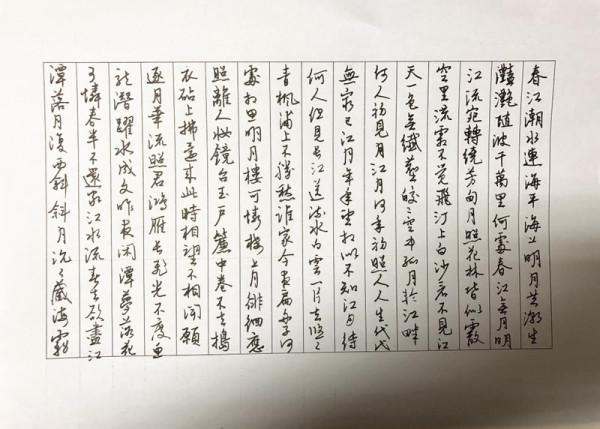 春江潮水連海平海上明月共潮生
灩灩隨波千萬里何處春江無月明
江流宛轉繞芳甸月照花林皆似霰
空里流霜不覺飛汀上白沙看不見江
天一色無纖塵皎々空中孤月輪江畔
何人初見月江月何年初照人人生代代
無窮已江月年年望相似不知江月待
何人但見長江送流水白雲一片去悠々
青楓浦上不勝愁誰家今夜扁舟子何
處相思明月樓可憐樓上月徘徊應
照離人妝鏡台玉戶簾中卷不去搗
衣砧上拂還來此時相望不相聞願
逐月華流照君鴻雁長飛光不度魚
龍潛躍水成文昨夜閑潭夢落花
可憐春半不還家江水流春去欲盡江
潭落月復西斜斜月沉々藏海霧